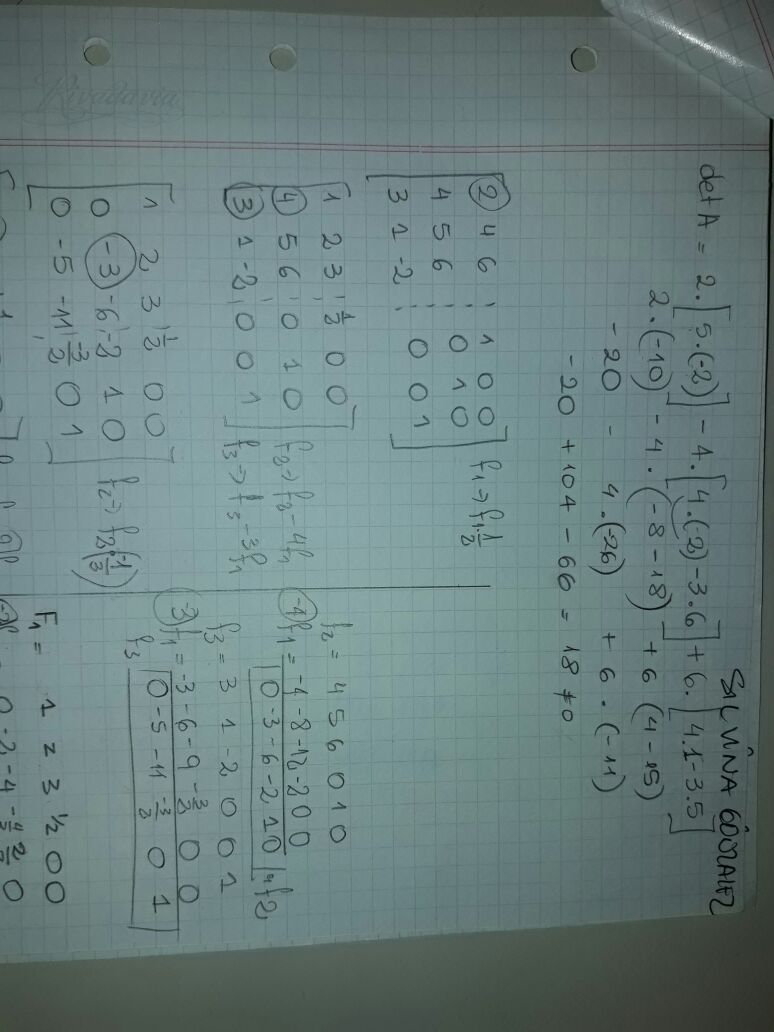 det A = 2.[5.(-2)] - 4.[4.(-2)-3.6] + 6.[4.1-3.5]
2.(-10) - 4.(-8-18) + 6(4-15)
-20 - 4.(-26) + 6.(-11)
-20 + 104 - 66 = 18 ≠ 0
2 4 6 | 1 0 0
4 5 6 | 0 1 0
3 1 -2 | 0 0 1
f1 → f1.1/2
1 2 3 | 1/2 0 0
4 5 6 | 0 1 0
3 1 -2 | 0 0 1
f2 → f2 - 4f1
f3 → f3 - 3f1
1 2 3 | 1/2 0 0
0 -3 -6 | -2 1 0
0 -5 -11 | -3/2 0 1
f2 → f2.(-1/3)
f2 = 4 5 6 0 1 0
-4f1 = -4 -8 -12 -2 0 0
0 -3 -6 -2 1 0
f3 = 3 1 -2 0 0 1
-3f1 = -3 -6 -9 -3/2 0 0
f3 0 -5 -11 -3/2 0 1
F1 = 1 2 3 1/2 0 0
Rivadavia